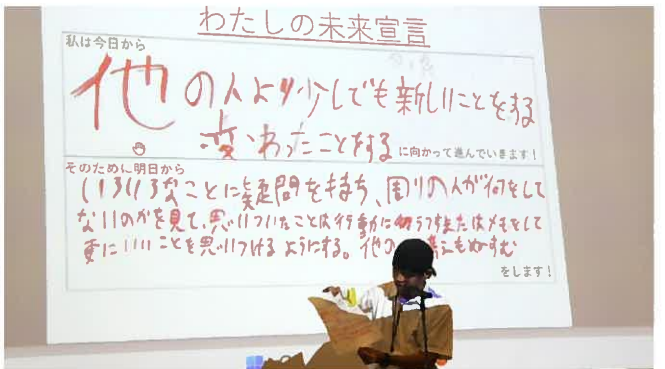 わたしの未来宣言
私は今日から
他の人より少しでも新しいことをする
変わったことをする
に向かって進んでいきます!
そのために明日から
いろいろなことに疑問を持ち、周りの人が何をして
ないのかを見て、思いついたことは行動にうつすまたはメモをして
更にいいことを思いつけるようにする。他の考えもぬすむ
をします!